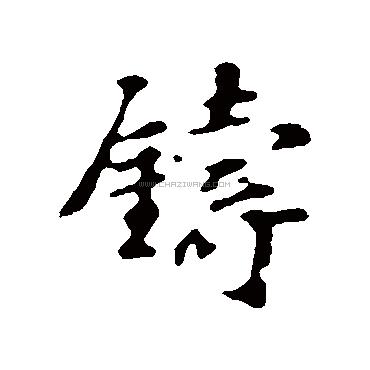 鑄
WWW.CHAZIWANG.COM